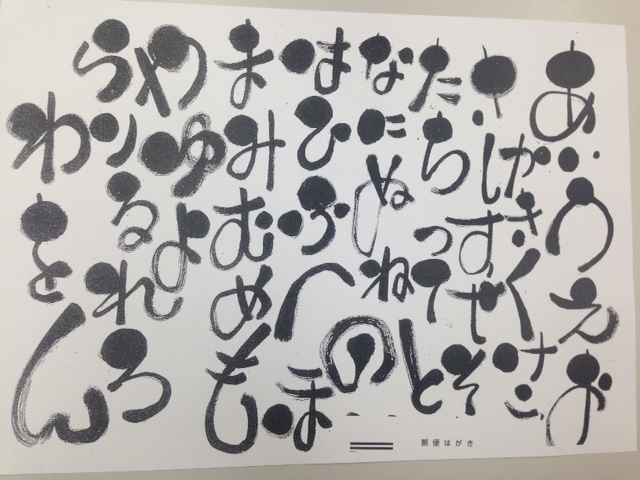 あいうえお
かきくけこ
さしすせそ
たちつてと
なにぬねの
はひふへほ
まみむめも
やゆよ
らりるれろ
わをん
郵便はがき